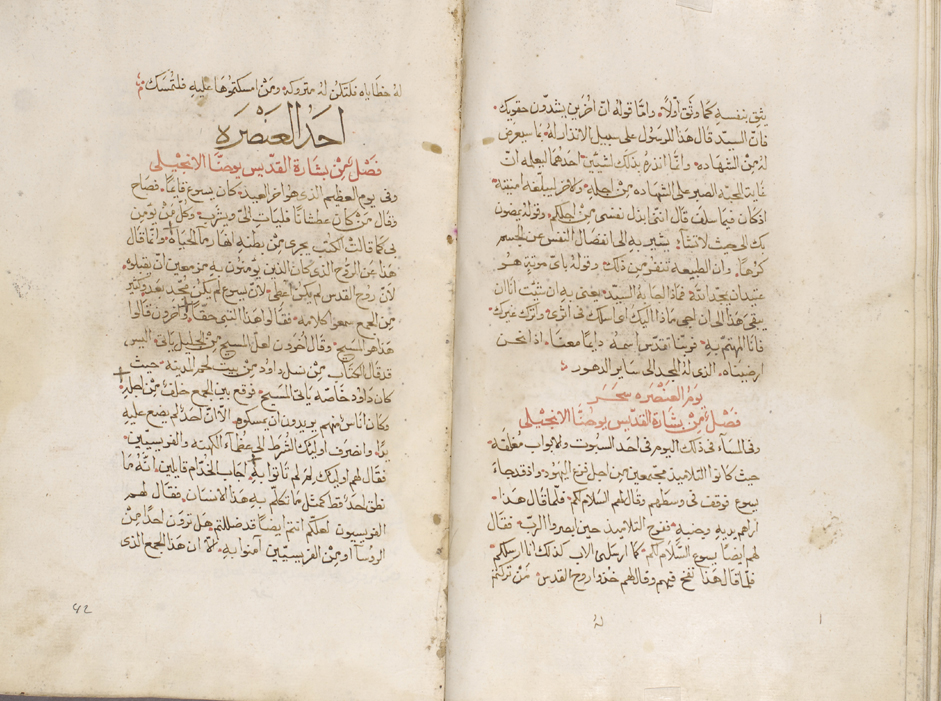 يثق بنفسه كما وثق اولاً. واما قوله ان اخرين يشدون حقويك
فان السيد قال هذا للرسول على سبيل الانذار له بما سيعرض
له من الشهاده. وانما انذره بذلك لشيين. احدهما ليعلمه ان
غاية المحبه الصبر على الشهاده من اجله. والاخر اسلفه امنيته
اذ كان فيما سلف قال انني ابذل نفسي من اجلك. وقوله يمضون
بك الى حيث لا تشا. يشير به الى انفصال النفس عن الجسم
كرهاً. وان الطبيعه تنفر من ذلك. وقوله باي موته هو
عتيد ان يمجد الله. فماذا اجابه السيد. يعني به ان شيت انا ان
يبقى هذا الى ان اجي ماذا اليك اي اسلك في اثري واترك غيرك
فانا المهتم به. فربنا تقدس اسمه دايماً معنا. اذا نحن
ارضيناه. الذي له المجد الى ساير الدهور
يوم العنصره سحر
فصل من بشارة القديس يوحنا الانجيلي
وفي المسآء في ذلك اليوم في احد السبوت والابواب مغلقه
حيث كانوا التلاميذ مجتمعين من اجل فزع اليهود واذ قد جاء
يسوع فوقف في وسطهم وقال لهم السلام لكم. فلما قال هذا
اراهم يديه وجنبه. ففرح التلاميذ حين ابصروا الرب. فقال
لهم ايضاً يسوع السلام لكم. كما ارسلني الاب كذلك انا ارسلكم
فلما قال هذا نفخ فيهم وقال لهم خذوا روح القدس. من تركتم
له
له خطاياه فلتكن له متروكه ومن امسكتموها عليه فلتمسك
احد العنصره
فصل من بشارة القديس يوحنا الانجيلي
وفي يوم العظيم الذي هو اخر العيد. كان يسوع قايماً. فصاح
وقال من كان عطشاناً فليات الي ويشرب. وكل من يومن
بي كما قالت الكتب يجري من بطنه انهار مآ الحياة. وانما قال
هذا عن الروح الذي كان الذين يومنون به مزمعين ان يقبلوه
لان روح القدس لم يكن اعطي. لان يسوع لم يكن مجد بعد. كثير
من الجمع سمعوا كلامه. فقالوا هذا النبي حقاً. واخرون قالوا
هذا هو المسيح. وقال اخرون لعل المسيح من الجليل ياتي. اليس
قد قال الكتاب من نسل داود من بيت لحم المدينه. حيث
كان داود خاصة ياتي المسيح. فوقع بين الجمع خلف من اجله
وكان اناس منهم يريدون ان يمسكوه. الا ان احد لم يضع عليه
يداً. وانصرف اوليك الشرط الى عظمآء الكهنه والفريسيين.
فقال لهم اوليك لم لم تاتوا به. اجاب الخدام قايلين. انه ما
نطق احد قط كمثل ما تكلم به هذا الانسان. فقال لهم
الفريسيون لعلكم انتم ايضاً قد ضللتم. هل ترون احداً من
الروسآ او من الفريسيين آمنوا به. الا ان هذا الجمع الذي
42